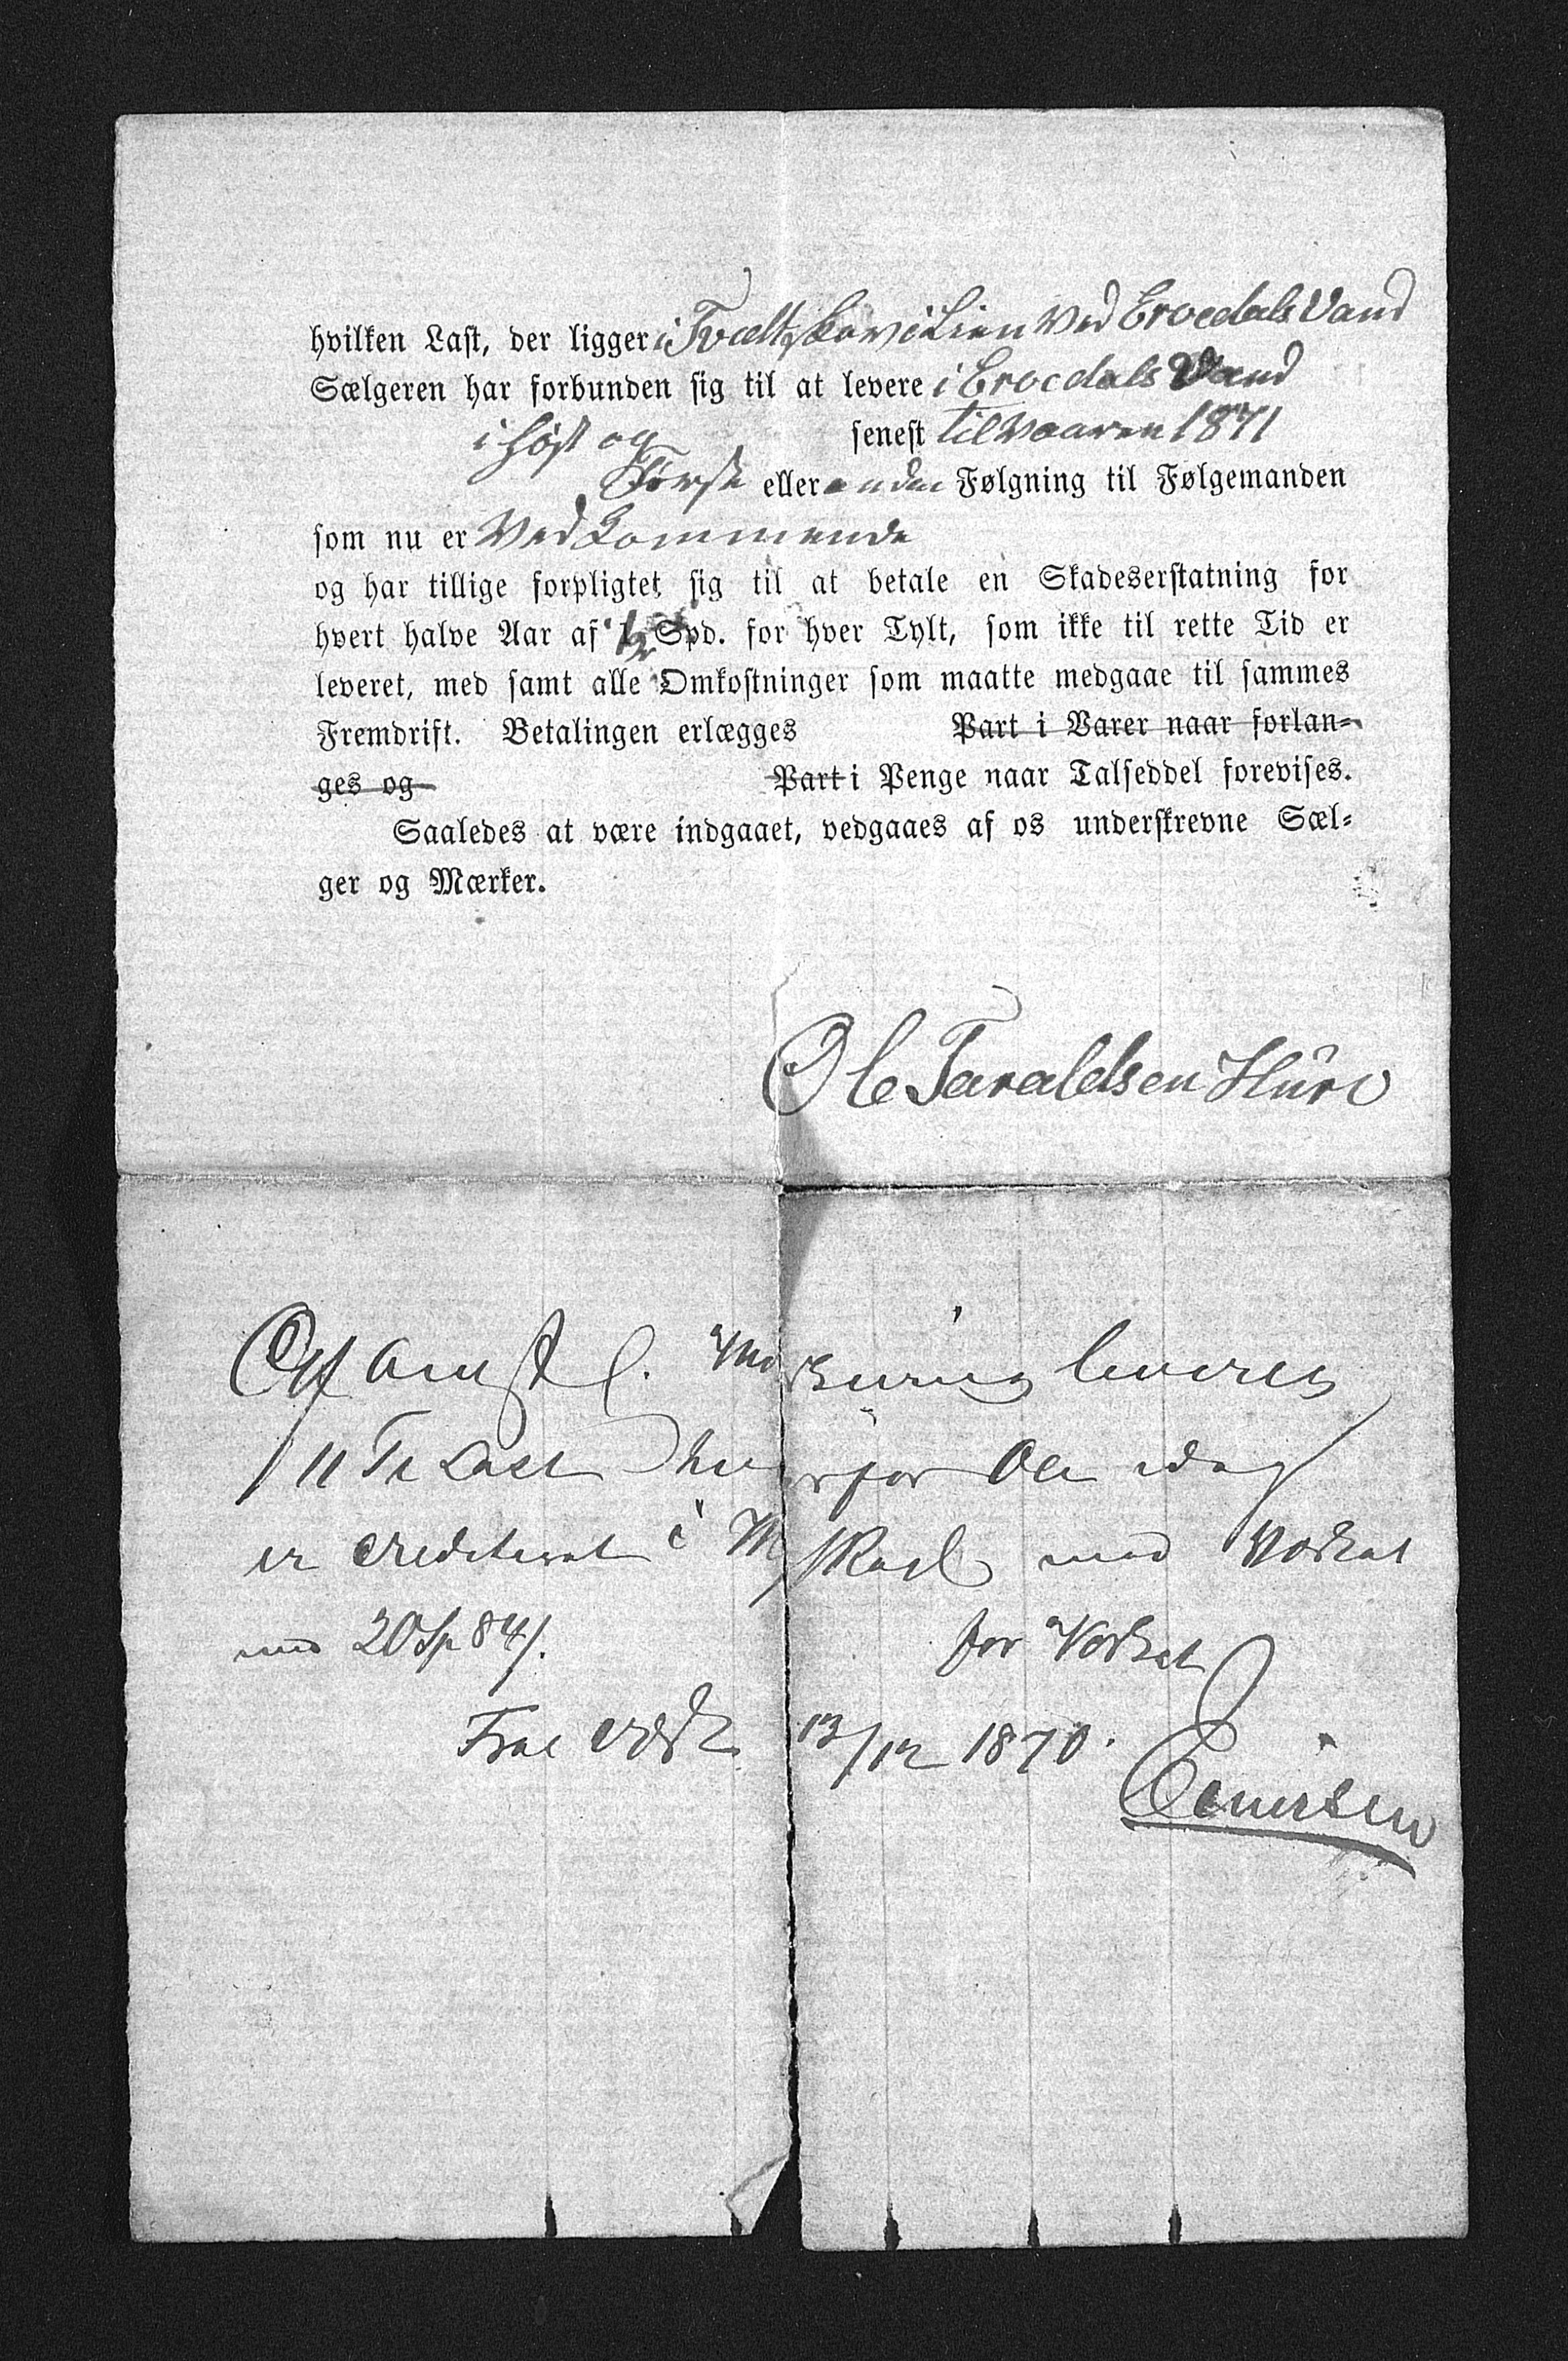 hvilken Last, der ligger i Tvedt Skov i Lien ved Erocdals Vand
Sælgeren har forbunden sig til at levere i Erocdals Vand
i Høst og senest til Vaaren 1871
Første eller anden Følgning til Følgemanden
som nu er Vedkommende
og har tillige forpligtet sig til at betale en Skadeserstatning for
hvert halve Aar af 1/2 Spd. for hver Tylt, som ikke til rette Tid er
leveret, med samt alle Omkostninger som maatte medgaae til sammes
Fremdrift. Betalingen erlægges Part i Varer naar forlan-
ges og Part i Penge naar Talseddel forevises.
Saaledes at være indgaaet, vedgaaes af os underskrevne Sæl-
ger og Mærker.
Ole Taraldsen Huro
leveres
11 Tr Last hvorfor Ole idag
er crediteret i med Værket
med 20 Sp 84/.
for Værket
13/12 1870.